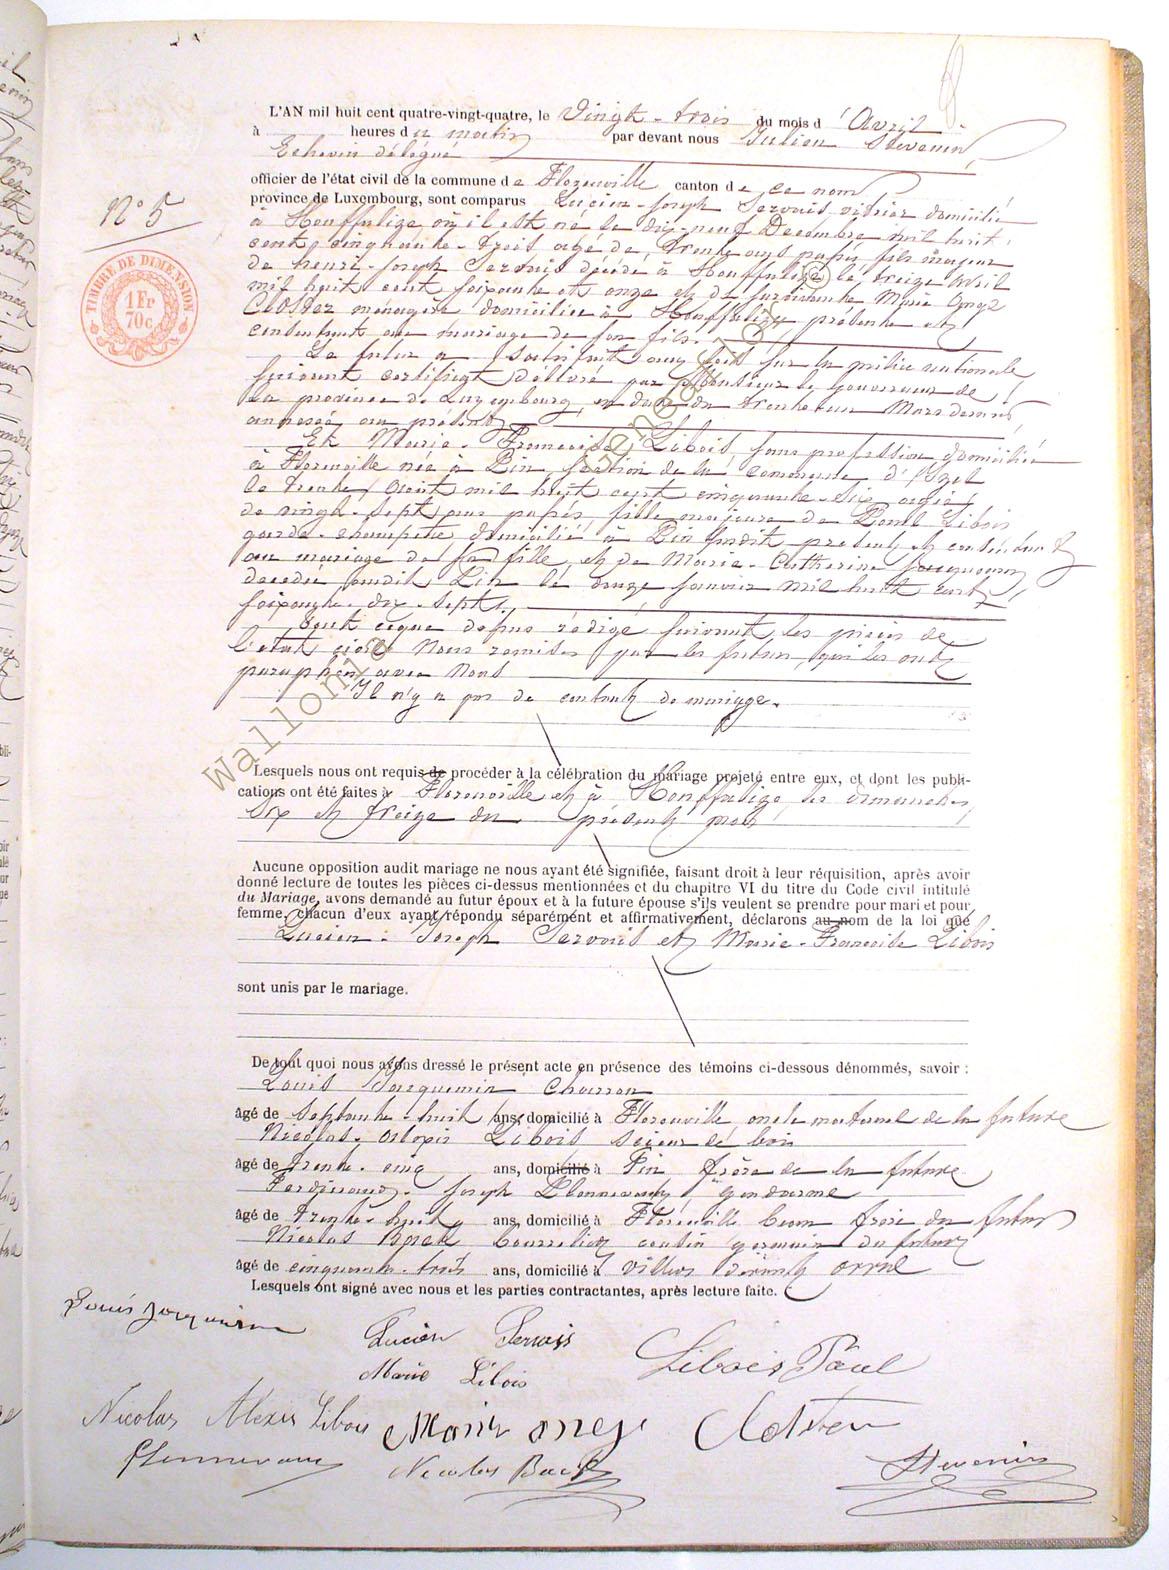 L'AN mil huit cent quatre-vingt-quatre, le Vingt-trois du mois d'Avril
à heures du matin par devant nous Julien Stévenin
Echevin délégué
officier de l'état civil de la commune de Florenville canton de ce nom
province de Luxembourg, sont comparus Lucien-Joseph Servais vitrier domicilié
à Houffalize où il est né le dix-neuf Décembre mil huit
cent cinquante-trois, agé de trente ans passés fils majeur
de henri-Joseph Servais décédé à Houffalize le treize avril
mil huit cent soixante et onze et de survivante Marie Ange
Closter ménagère domiciliée à Houffalize présente et
consentant au mariage de son fils.
N° 5
TIMBRE DE DIMENSION
1 Fr
70c
Le futur a satisfait aux lois sur la milice nationale
suivant certificat délivré par Monsieur le Gouverneur de
la province de Luxembourg, en date du trente un Mars dernier
annexée au présent
Et Marie-Françoise Libois, sans profession domiciliée
à Florenville née à Pin, section de la commune d'Izel
le trente Août mil huit cent cinquante-six agée
de vingt-sept ans passés fille majeure de Paul Libois
garde-champêtre domicilié à Pin susdit présent et consentant
au mariage de sa fille, et de Marie-Catherine Jacquemin
décédée audit Pin le douze Janvier mil huit cent
soixante-dix-sept.
Tout ceque dessus rédigé suivant les pièces de
l'état civil Nous remises par les futurs, qui les ont
paraphées avec Nous
Il n'y a pas de contrat de mariage.
Lesquels nous ont requis de procéder à la célébration du mariage projeté entre eux, et dont les publi-
cations ont été faites à Florenville et à Houffalize, les dimanches
six et treize du présent mois
Aucune opposition audit mariage ne nous ayant été signifiée, faisant droit à leur réquisition, après avoir
donné lecture de toutes les pièces ci-dessus mentionnées et du chapitre VI du titre du Code civil intitulé
du Mariage, avons demandé au futur époux et à la future épouse s'ils veulent se prendre pour mari et pour
femme, chacun d'eux ayant répondu séparément et affirmativement, déclarons au nom de la loi que
Lucien-Joseph Servais et Marie-Françoise Libois
sont unis par le mariage.
De tout quoi nous avons dressé le présent acte en présence des témoins ci-dessous dénommés, savoir :
Louis Jacquemin Charron
âgé de septante-huit ans, domicilié à Florenville, oncle maternel de la future
Nicolas-Alexis Libois scieur de bois
âgé de trente-cinq ans, domicilié à Pin frère de la future
Ferdinand-Joseph gendarme
âgé de trente-huit ans, domicilié à Florenville beau frère du futur
Nicolas bourrelier cousin germain du futur
âgé de cinquante-trois ans, domicilié à Villers devant Orval
Lesquels ont signé avec nous et les parties contractantes, après lecture faite.
Louis Jacquemin
Lucien Servais
Marie Libois
Libois Paul
Nicolas Alexis Libois
Marie ange Closter
Nicolas
Stevenin
Wallonie © Geneanet.org